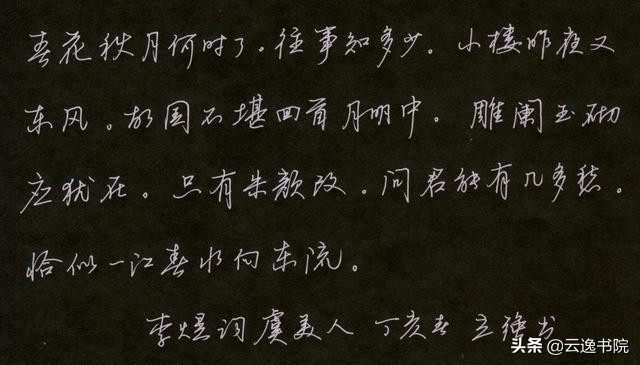 春花秋月何时了。往事知多少。小楼昨夜又
东风。故国不堪回首月明中。雕阑玉砌
应犹在。只有朱颜改。问君能有几多愁。
恰似一江春水向东流。
李煜词虞美人 丁亥春 立强书
头条@云逸书院